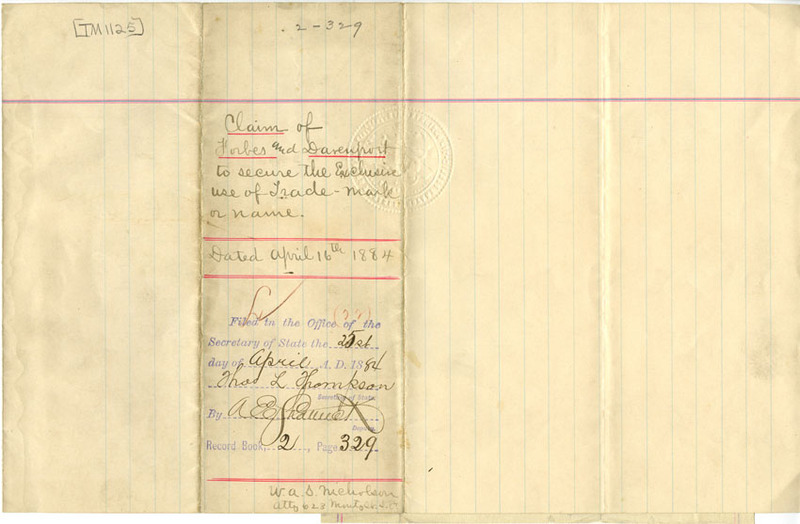 [TM1125]
2-329
Claim of
Forbes and Davenport
to secure the Exclusive
use of Trade-mark
or name.
Dated April 16th 1884
Filed in the Office of the
Secretary of State the 25st
day of April A. D. 1884
Thos L Thompson
Secretary of State.
By A E
Deputy.
Record Book, 2, Page 329
W. A. S. Nicholson
Atty 623